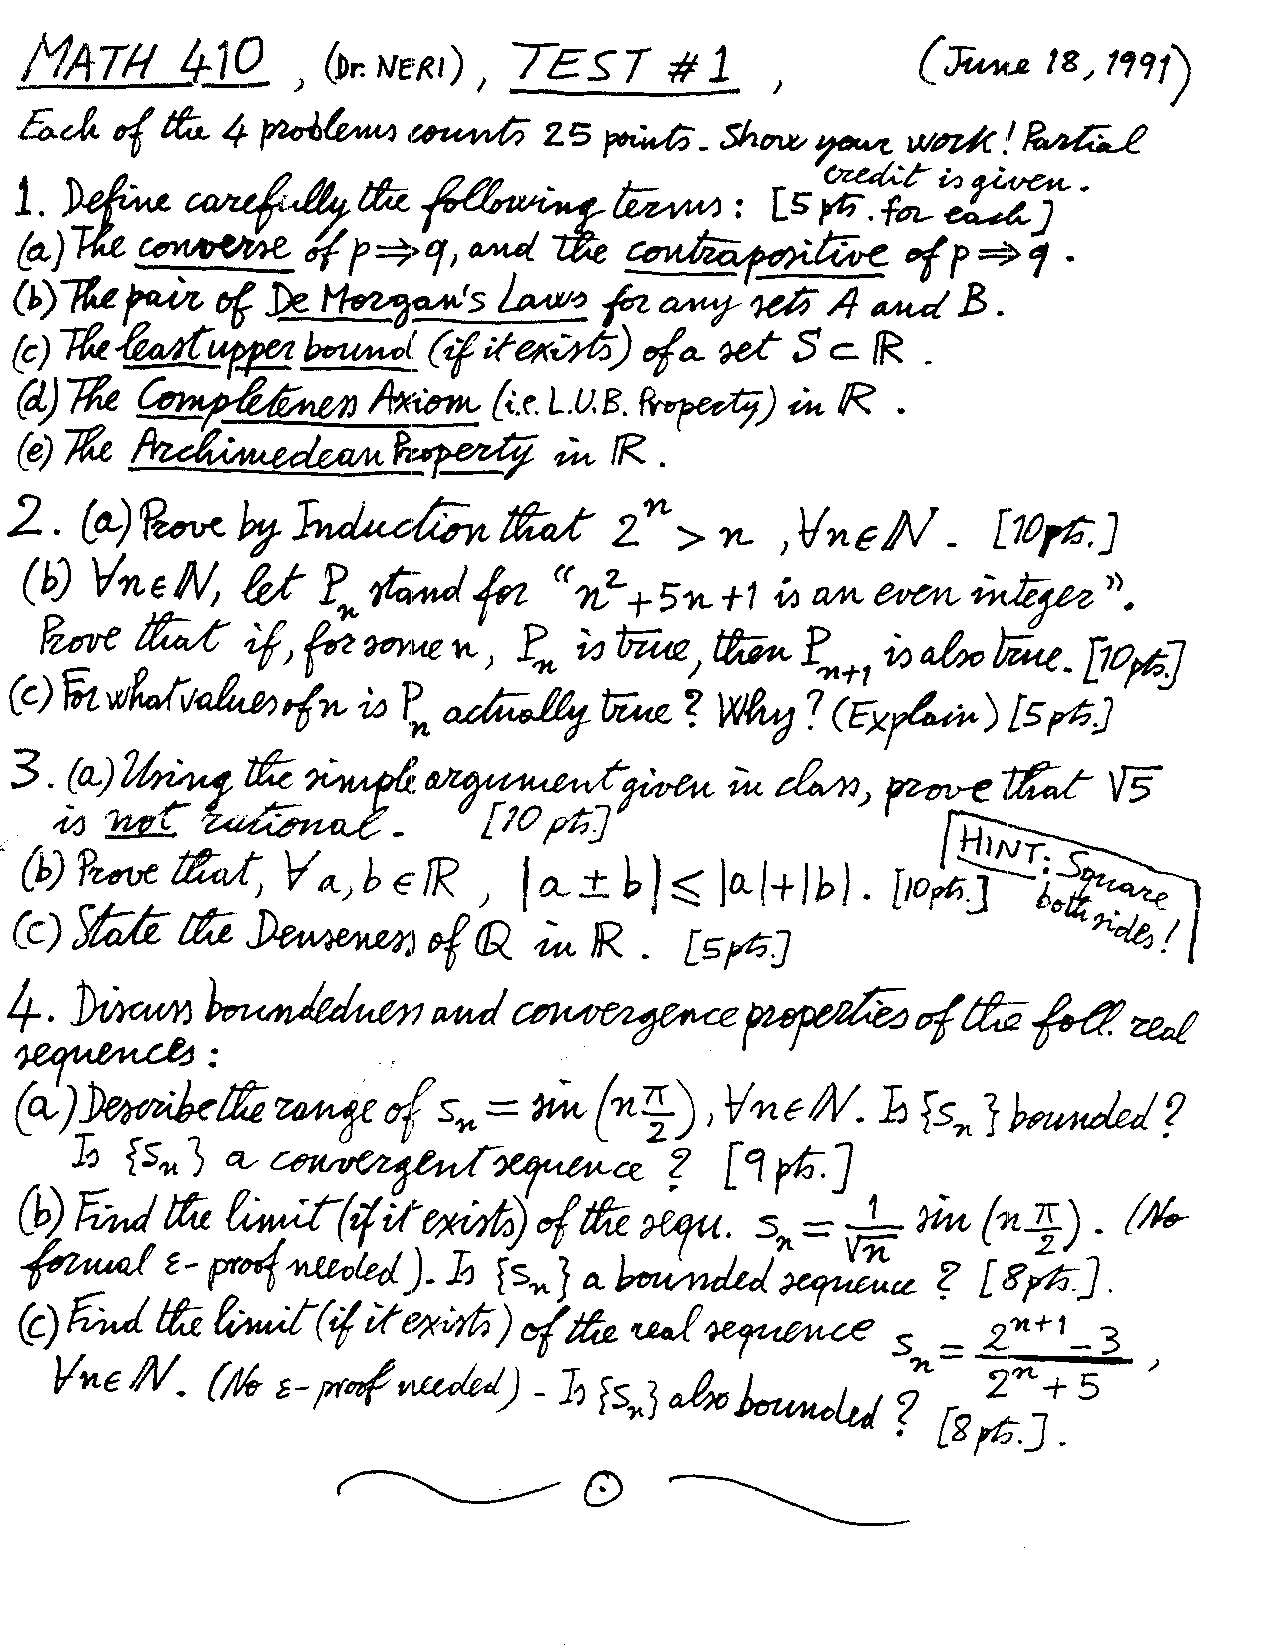 MATH 410, (Dr. NERI), TEST #1, (June 18, 1991)
Each of the 4 problems counts 25 points. Show your work! Partial
credit is given.
1. Define carefully the following terms: [5 pts. for each]
(a) The converse of p ⇒ q, and the contrapositive of p ⇒ q.
(b) The pair of De Morgan's Laws for any sets A and B.
(c) The least upper bound (if it exists) of a set S ⊂ ℝ.
(d) The Completeness Axiom (i.e. L.U.B. Property) in ℝ.
(e) The Archimedean Property in ℝ.
2. (a) Prove by Induction that 2ⁿ > n, ∀n∈ℕ. [10 pts.]
(b) ∀n∈ℕ, let Pₙ stand for "n² + 5n + 1 is an even integer".
Prove that if, for some n, Pₙ is true, then Pₙ₊₁ is also true. [10 pts.]
(c) For what values of n is Pₙ actually true? Why? (Explain) [5 pts.]
3. (a) Using the simple argument given in class, prove that √5
is not rational. [10 pts.]
(b) Prove that, ∀ a, b ∈ ℝ, |a ± b| ≤ |a| + |b|. [10 pts.]
HINT: Square
both sides!
(c) State the Denseness of ℚ in ℝ. [5 pts.]
4. Discuss boundedness and convergence properties of the foll. real
sequences:
(a) Describe the range of sₙ = sin (n π/2), ∀n∈ℕ. Is {sₙ} bounded?
Is {sₙ} a convergent sequence? [9 pts.]
(b) Find the limit (if it exists) of the sequ. sₙ = 1/√n sin (n π/2). (No
formal ε-proof needed). Is {sₙ} a bounded sequence? [8 pts.].
(c) Find the limit (if it exists) of the real sequence sₙ = (2ⁿ⁺¹ - 3)/(2ⁿ + 5),
∀n∈ℕ. (No ε-proof needed) - Is {sₙ} also bounded? [8 pts.].